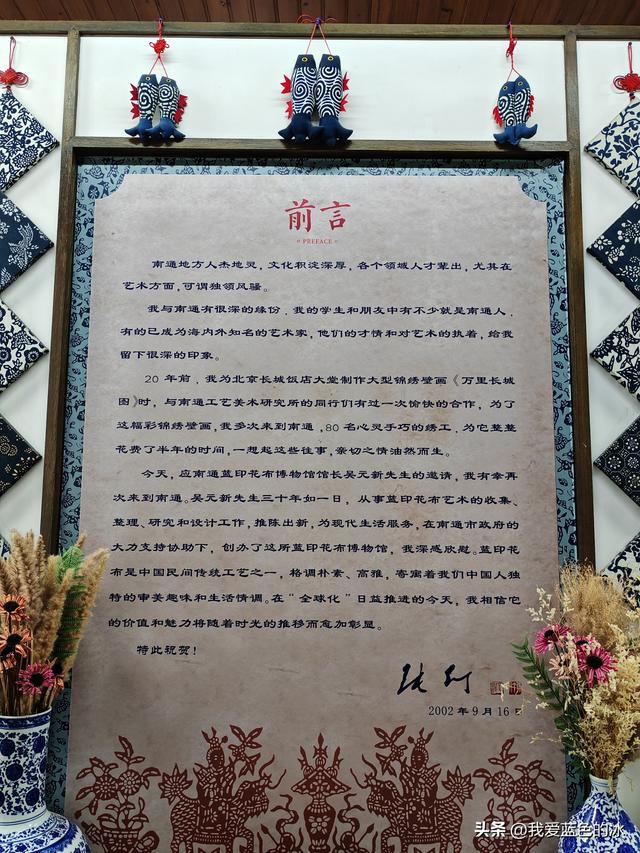 前言
PREFACE
南通地方人杰地灵，文化积淀深厚，各个领域人才辈出，尤其在
艺术方面，可谓独领风骚。
我与南通有很深的缘份，我的学生和朋友中有不少就是南通人，
有的已成为海内外知名的艺术家，他们的才情和对艺术的执着，给我
留下很深的印象。
20 年前，我为北京长城饭店大堂制作大型锦绣壁画《万里长城
图》时，与南通工艺美术研究所的同行们有过一次愉快的合作，为了
这幅彩锦绣壁画，我多次来到南通，80 名心灵手巧的绣工，为它整整
花费了半年的时间，一想起这些往事，亲切之情油然而生。
今天，应南通蓝印花布博物馆馆长吴元新先生的邀请，我有幸再
次来到南通。吴元新先生三十年如一日，从事蓝印花布艺术的收集、
整理、研究和设计工作，推陈出新，为现代生活服务，在南通市政府的
大力支持协助下，创办了这所蓝印花布博物馆，我深感欣慰。蓝印花
布是中国民间传统工艺之一，格调朴素、高雅，寄寓着我们中国人独
特的审美趣味和生活情调。在“全球化”日益推进的今天，我相信它
的价值和魅力将随着时光的推移而愈加彰显。
特此祝贺！
张仃
2002 年 9 月 16 日
头条 @我爱蓝色的冰